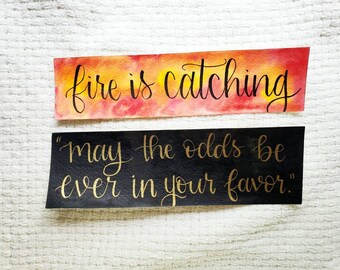 fire is catching
"may the odds be
ever in your favor."